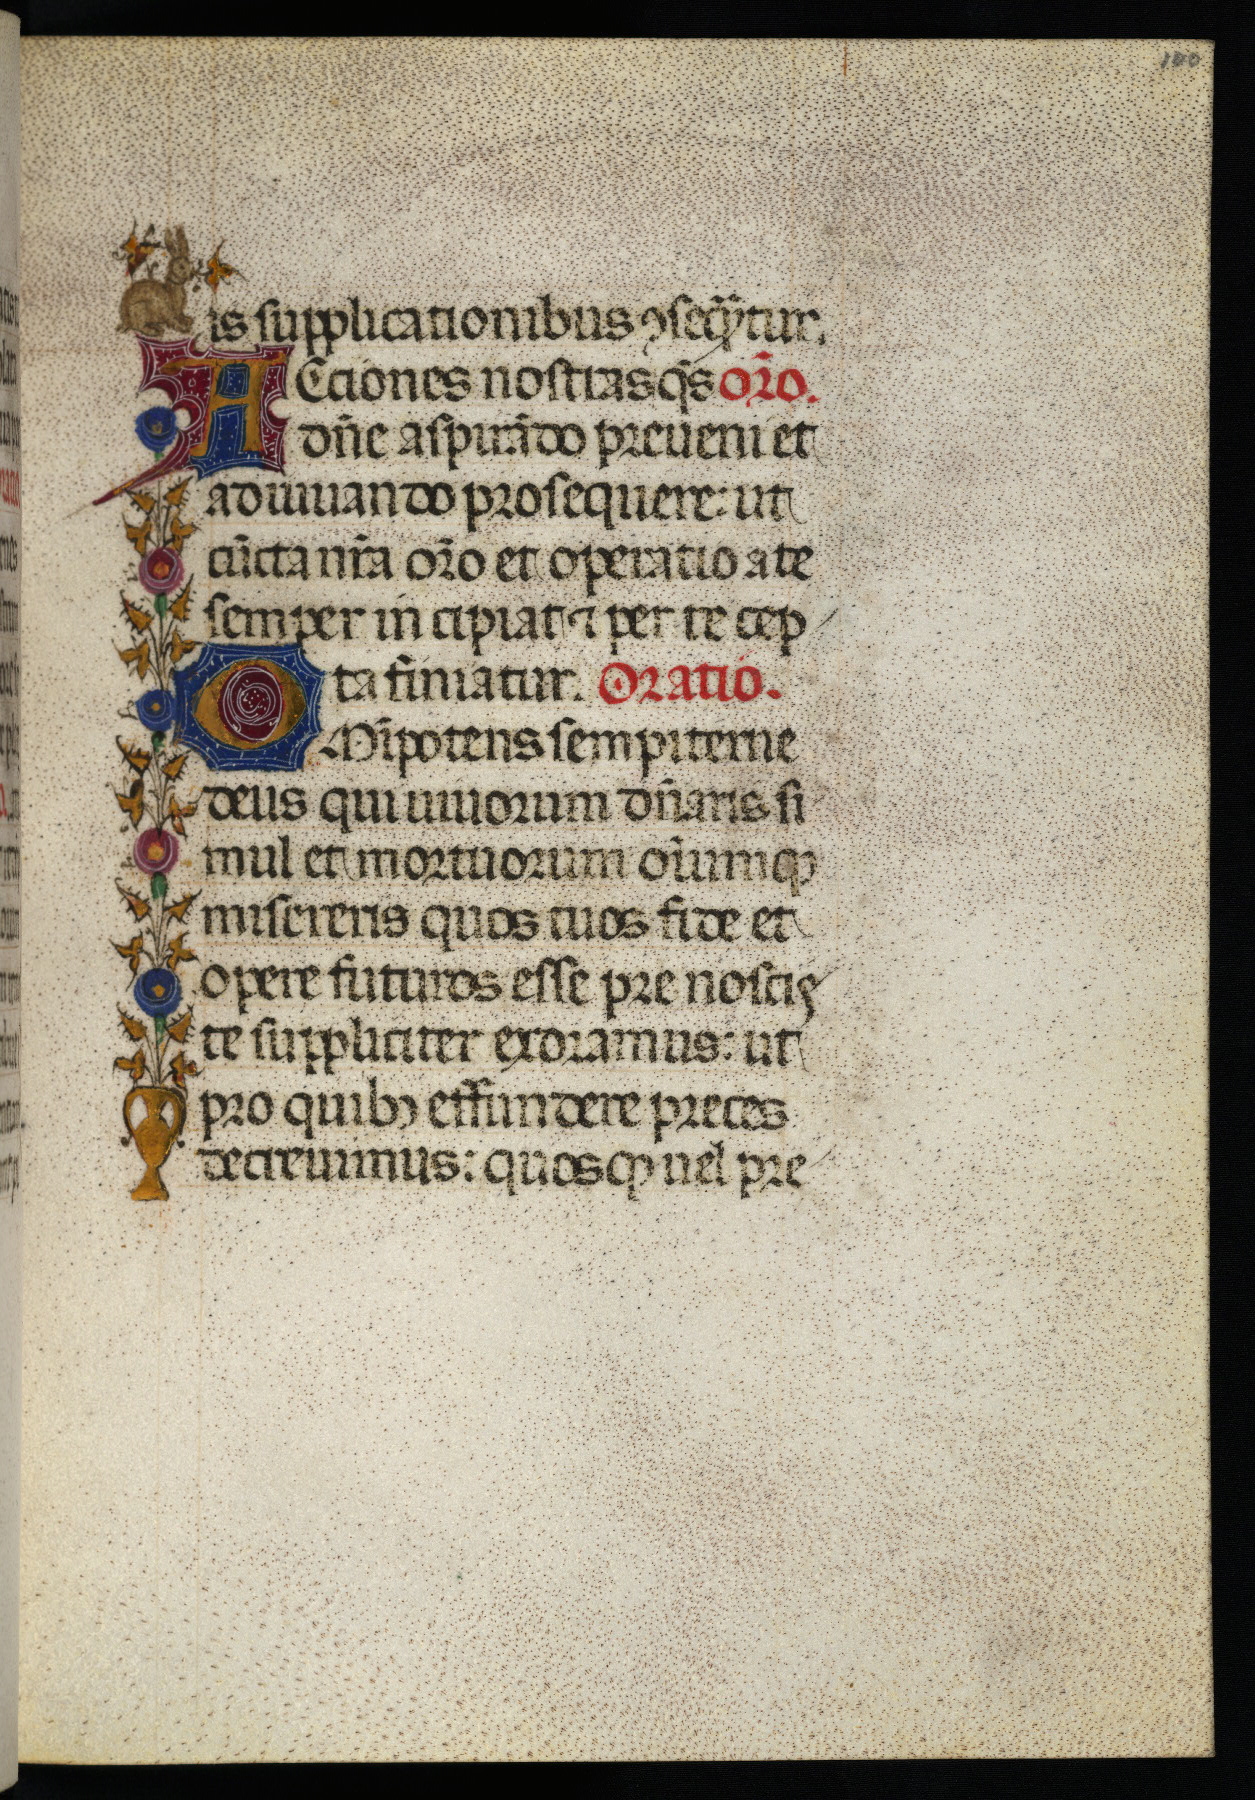 100
is supplicationibus ꝯseq̃ntur.
ACciones nostras q̃s or̃o.
dñe aspirãdo preueni et
adiuuando prosequere: ut
cũcta nr̃a or̃o et operatio a te
semper in cipiat ⁊ per te cep
ta finiatur. Oratio.
OMĩpotens sempiterne
deus qui uiuorum dñaris si
mul et mortuorum oĩumqꝫ
misereris quos tuos fide et
opere futuros esse pre noscis
te suppliciter exoramus: ut
pro quibꝫ effundere preces
decreuimus: quosqꝫ uel pre